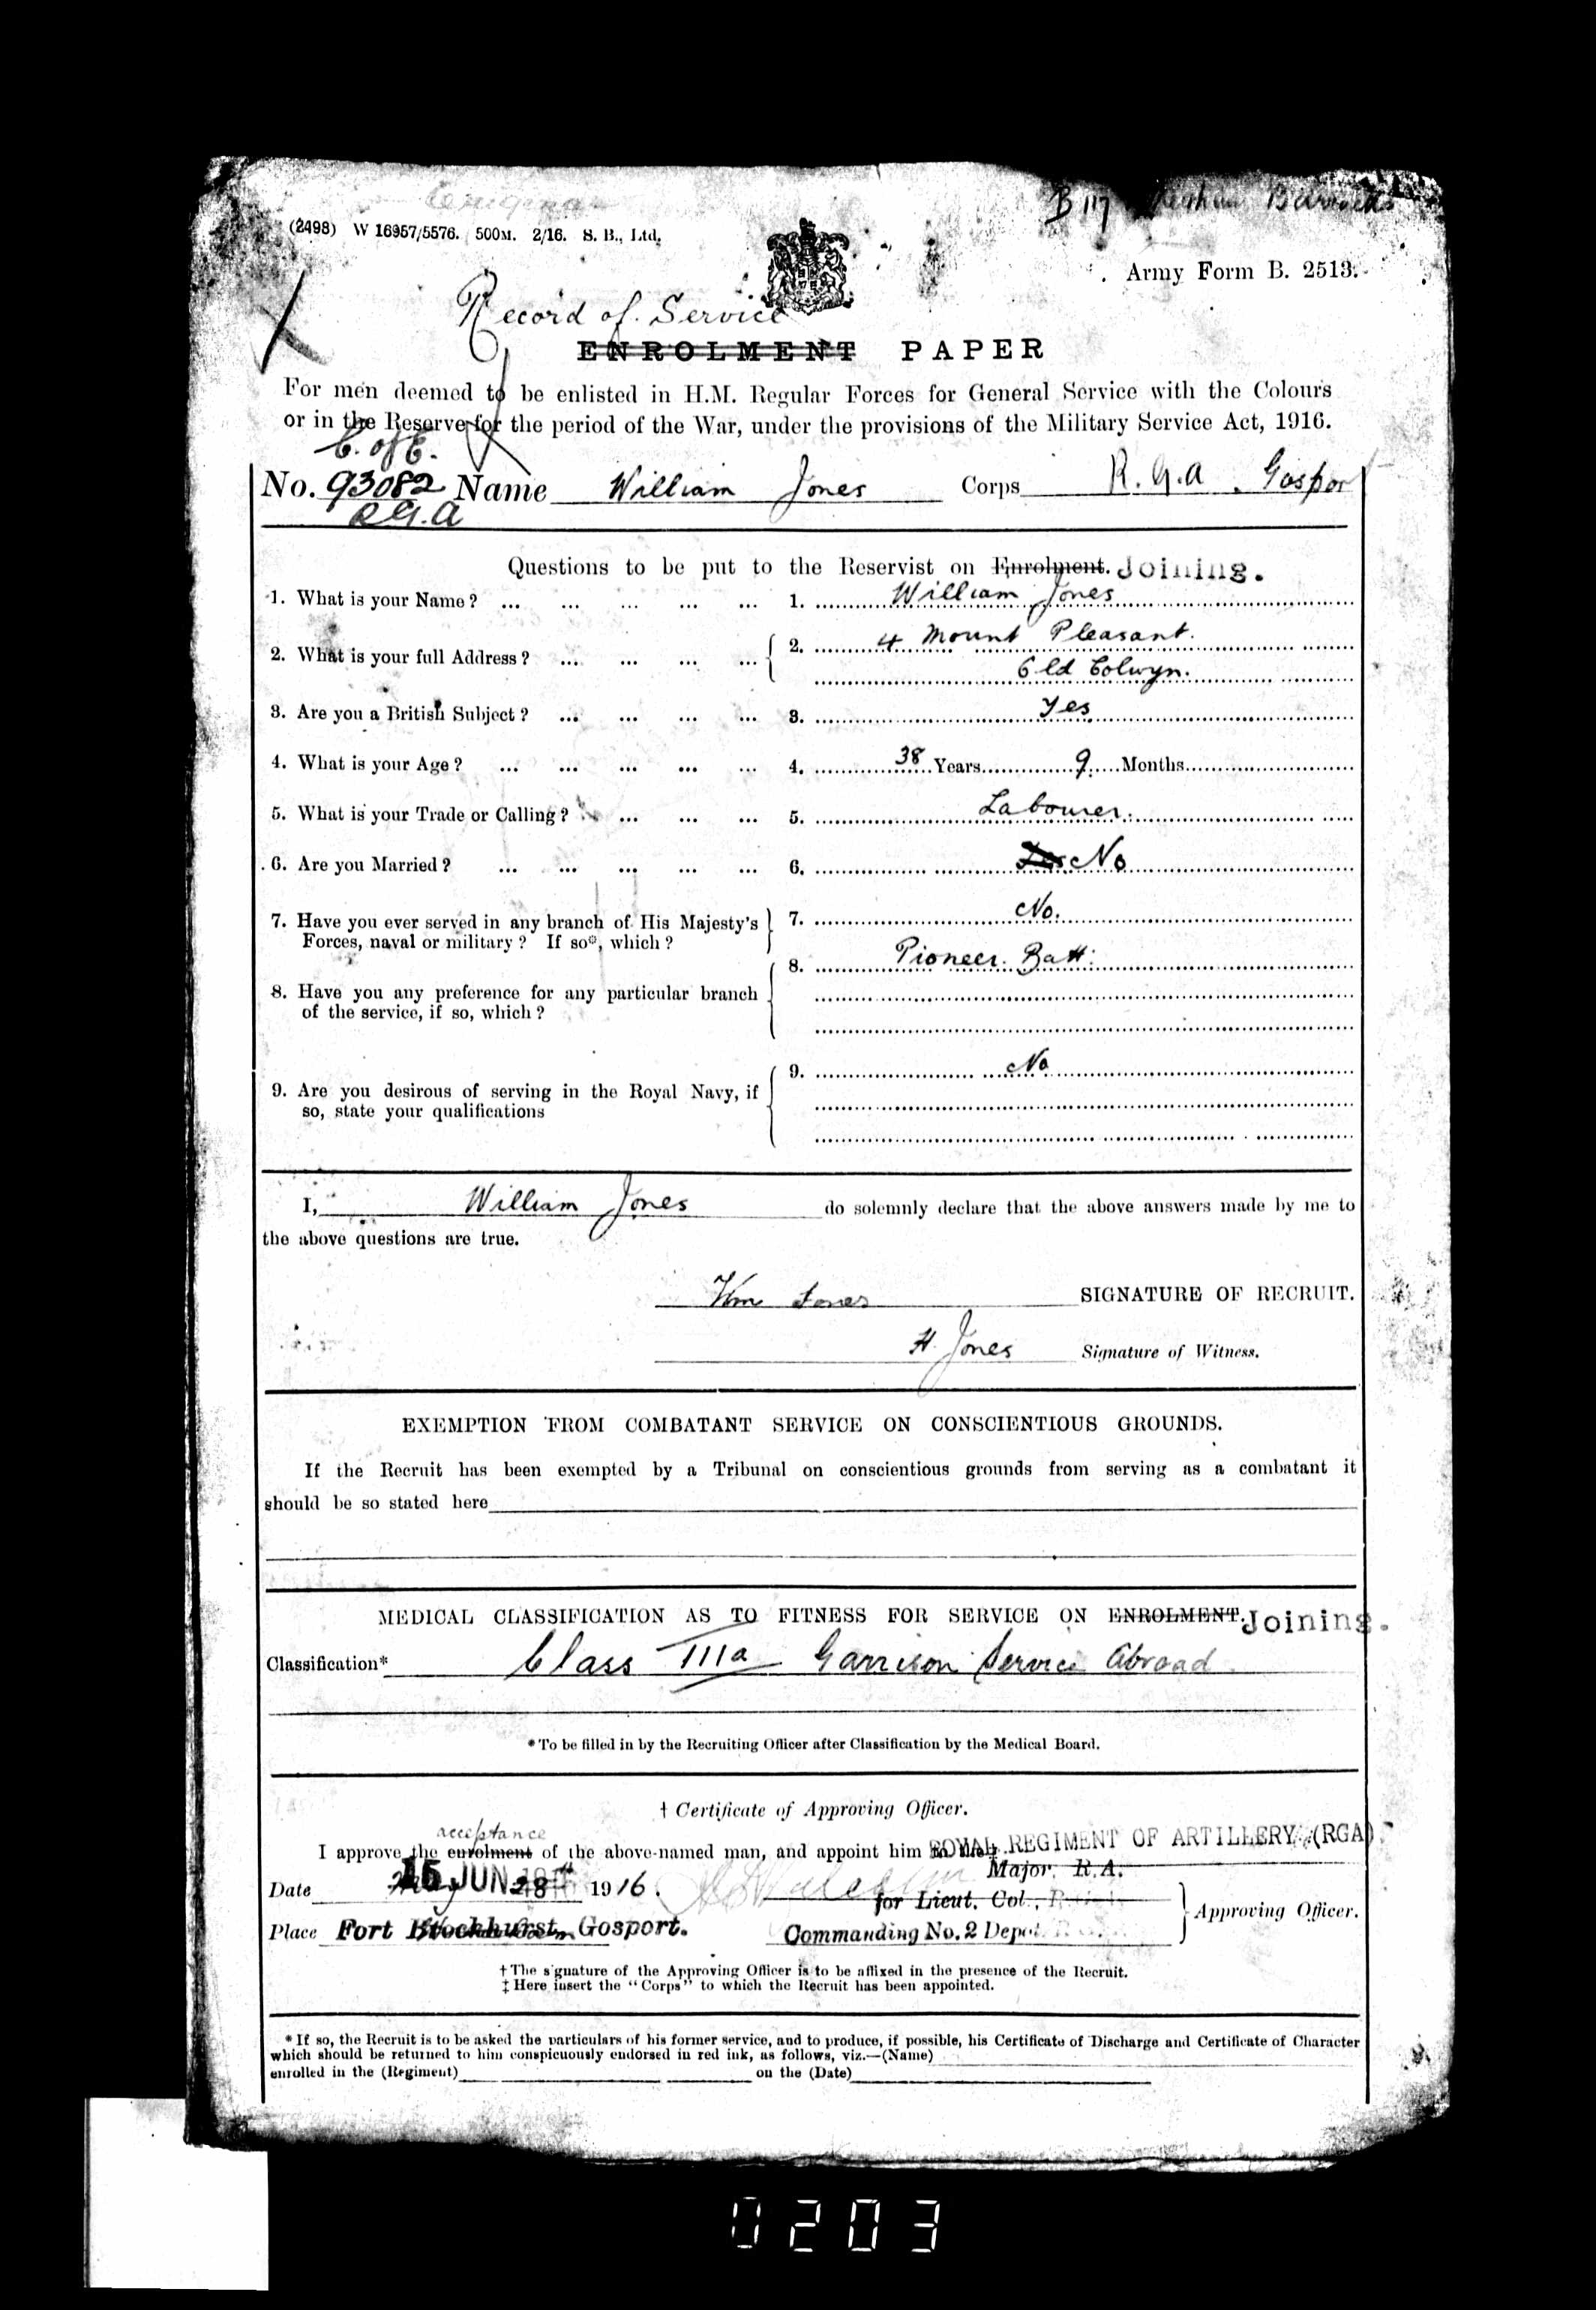 Original
B 117 Barracks
(2498) W 16957/5576. 500M. 2/16. S. B., Ltd.
Army Form B. 2513.
Record of Service
ENROLMENT PAPER
For men deemed to be enlisted in H.M. Regular Forces for General Service with the Colours
or in the Reserve for the period of the War, under the provisions of the Military Service Act, 1916.
C. of E.
No. 93082 Name William Jones Corps R.G.A. Gospor
R.G.A
Questions to be put to the Reservist on Enrolment. Joining.
1. What is your Name? ... ... ... ... ... 1. William Jones
2. What is your full Address? ... ... ... ... 2. 4 Mount Pleasant.
Old Colwyn.
3. Are you a British Subject? ... ... ... ... 3. Yes
4. What is your Age? ... ... ... ... ... 4. 38 Years 9 Months
5. What is your Trade or Calling? ... ... ... 5. Labourer.
6. Are you Married? ... ... ... ... ... 6. Yes No
7. Have you ever served in any branch of His Majesty's 7. No.
Forces, naval or military? If so*, which?
8. Pioneer Batt:
8. Have you any preference for any particular branch
of the service, if so, which?
9. No
9. Are you desirous of serving in the Royal Navy, if
so, state your qualifications
I, William Jones do solemnly declare that the above answers made by me to
the above questions are true.
Wm Jones SIGNATURE OF RECRUIT.
H. Jones Signature of Witness.
EXEMPTION FROM COMBATANT SERVICE ON CONSCIENTIOUS GROUNDS.
If the Recruit has been exempted by a Tribunal on conscientious grounds from serving as a combatant it
should be so stated here
MEDICAL CLASSIFICATION AS TO FITNESS FOR SERVICE ON ENROLMENT. Joining.
Classification* Class IIIa Garrison Service Abroad
*To be filled in by the Recruiting Officer after Classification by the Medical Board.
† Certificate of Approving Officer.
acceptance
I approve the enrolment of the above-named man, and appoint him to the‡ ROYAL REGIMENT OF ARTILLERY (RGA)
Major. R.A.
Date 15 JUN 1916.
for Lieut. Col.,
Approving Officer.
Place Fort Blockhurst, Gosport. Commanding No. 2 Depot
† The signature of the Approving Officer is to be affixed in the presence of the Recruit.
‡ Here insert the "Corps" to which the Recruit has been appointed.
* If so, the Recruit is to be asked the particulars of his former service, and to produce, if possible, his Certificate of Discharge and Certificate of Character
which should be returned to him conspicuously endorsed in red ink, as follows, viz.—(Name)
enrolled in the (Regiment) on the (Date)
0203